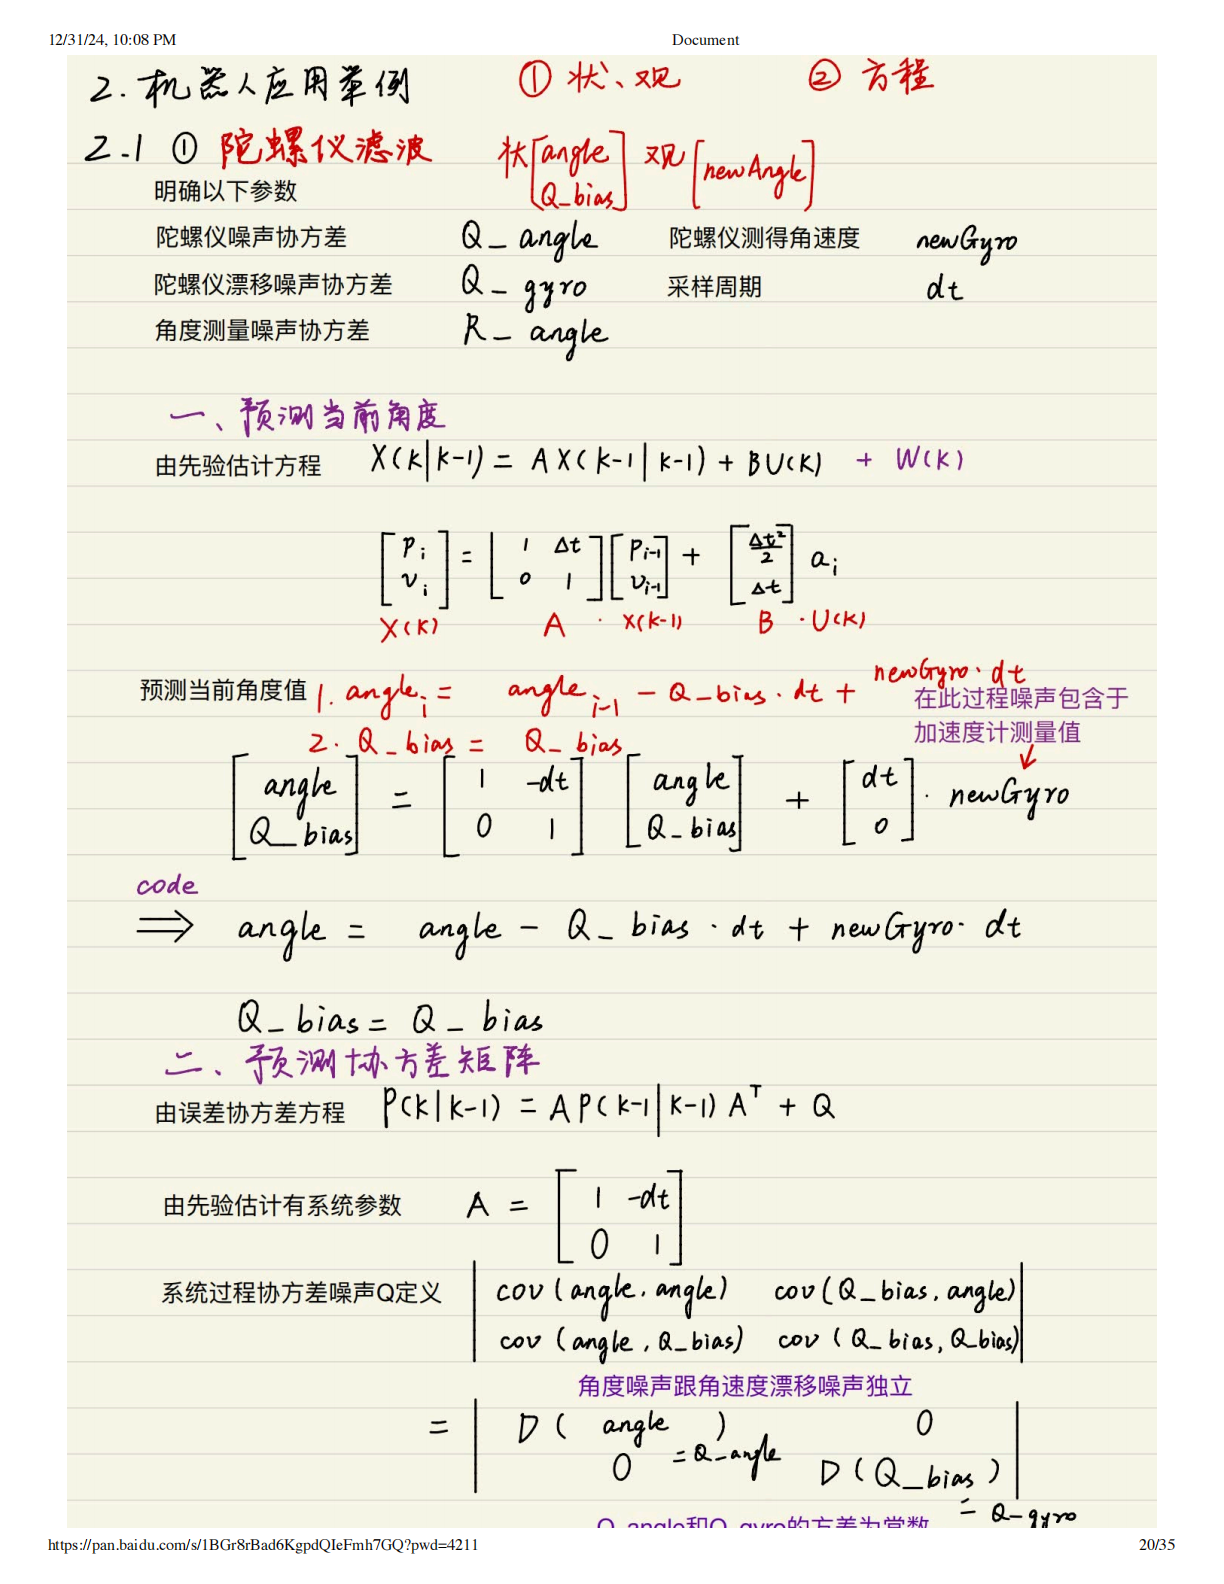 12/31/24, 10:08 PM Document
2.机器人应用举例 ① 状、观 ② 方程
2.1 ① 陀螺仪滤波 状[angle Q_bias] 观[newAngle]
明确以下参数
陀螺仪噪声协方差 Q_angle 陀螺仪测得角速度 newGyro
陀螺仪漂移噪声协方差 Q_gyro 采样周期 dt
角度测量噪声协方差 R_angle
一、预测当前角度
由先验估计方程 X(K|K-1) = AX(K-1|K-1) + BU(K) + W(K)
[Pi = [1 Δt [Pi-1 + [Δt²/2
vi] 0 1] vi-1] Δt] ai
X(K) A · X(K-1) B · U(K)
预测当前角度值 1. angle i = angle i-1 - Q_bias · dt + newGyro · dt
在此过程噪声包含于
加速度计测量值
2. Q_bias = Q_bias
[angle = [1 -dt [angle + [dt · newGyro
Q_bias] 0 1] Q_bias] 0]
code
⇒ angle = angle - Q_bias · dt + newGyro · dt
Q_bias = Q_bias
二、预测协方差矩阵
由误差协方差方程 P(K|K-1) = AP(K-1|K-1)Aᵀ + Q
由先验估计有系统参数 A = [1 -dt
0 1]
系统过程协方差噪声Q定义 | cov(angle, angle) cov(Q_bias, angle) |
| cov(angle, Q_bias) cov(Q_bias, Q_bias) |
角度噪声跟角速度漂移噪声独立
= | D( angle ) = Q_angle 0 |
| 0 D(Q_bias) = Q_gyro |
Q_angle和Q_gyro的方差为常数
https://pan.baidu.com/s/1BGr8rBad6KgpdQIeFmh7GQ?pwd=4211 20/35